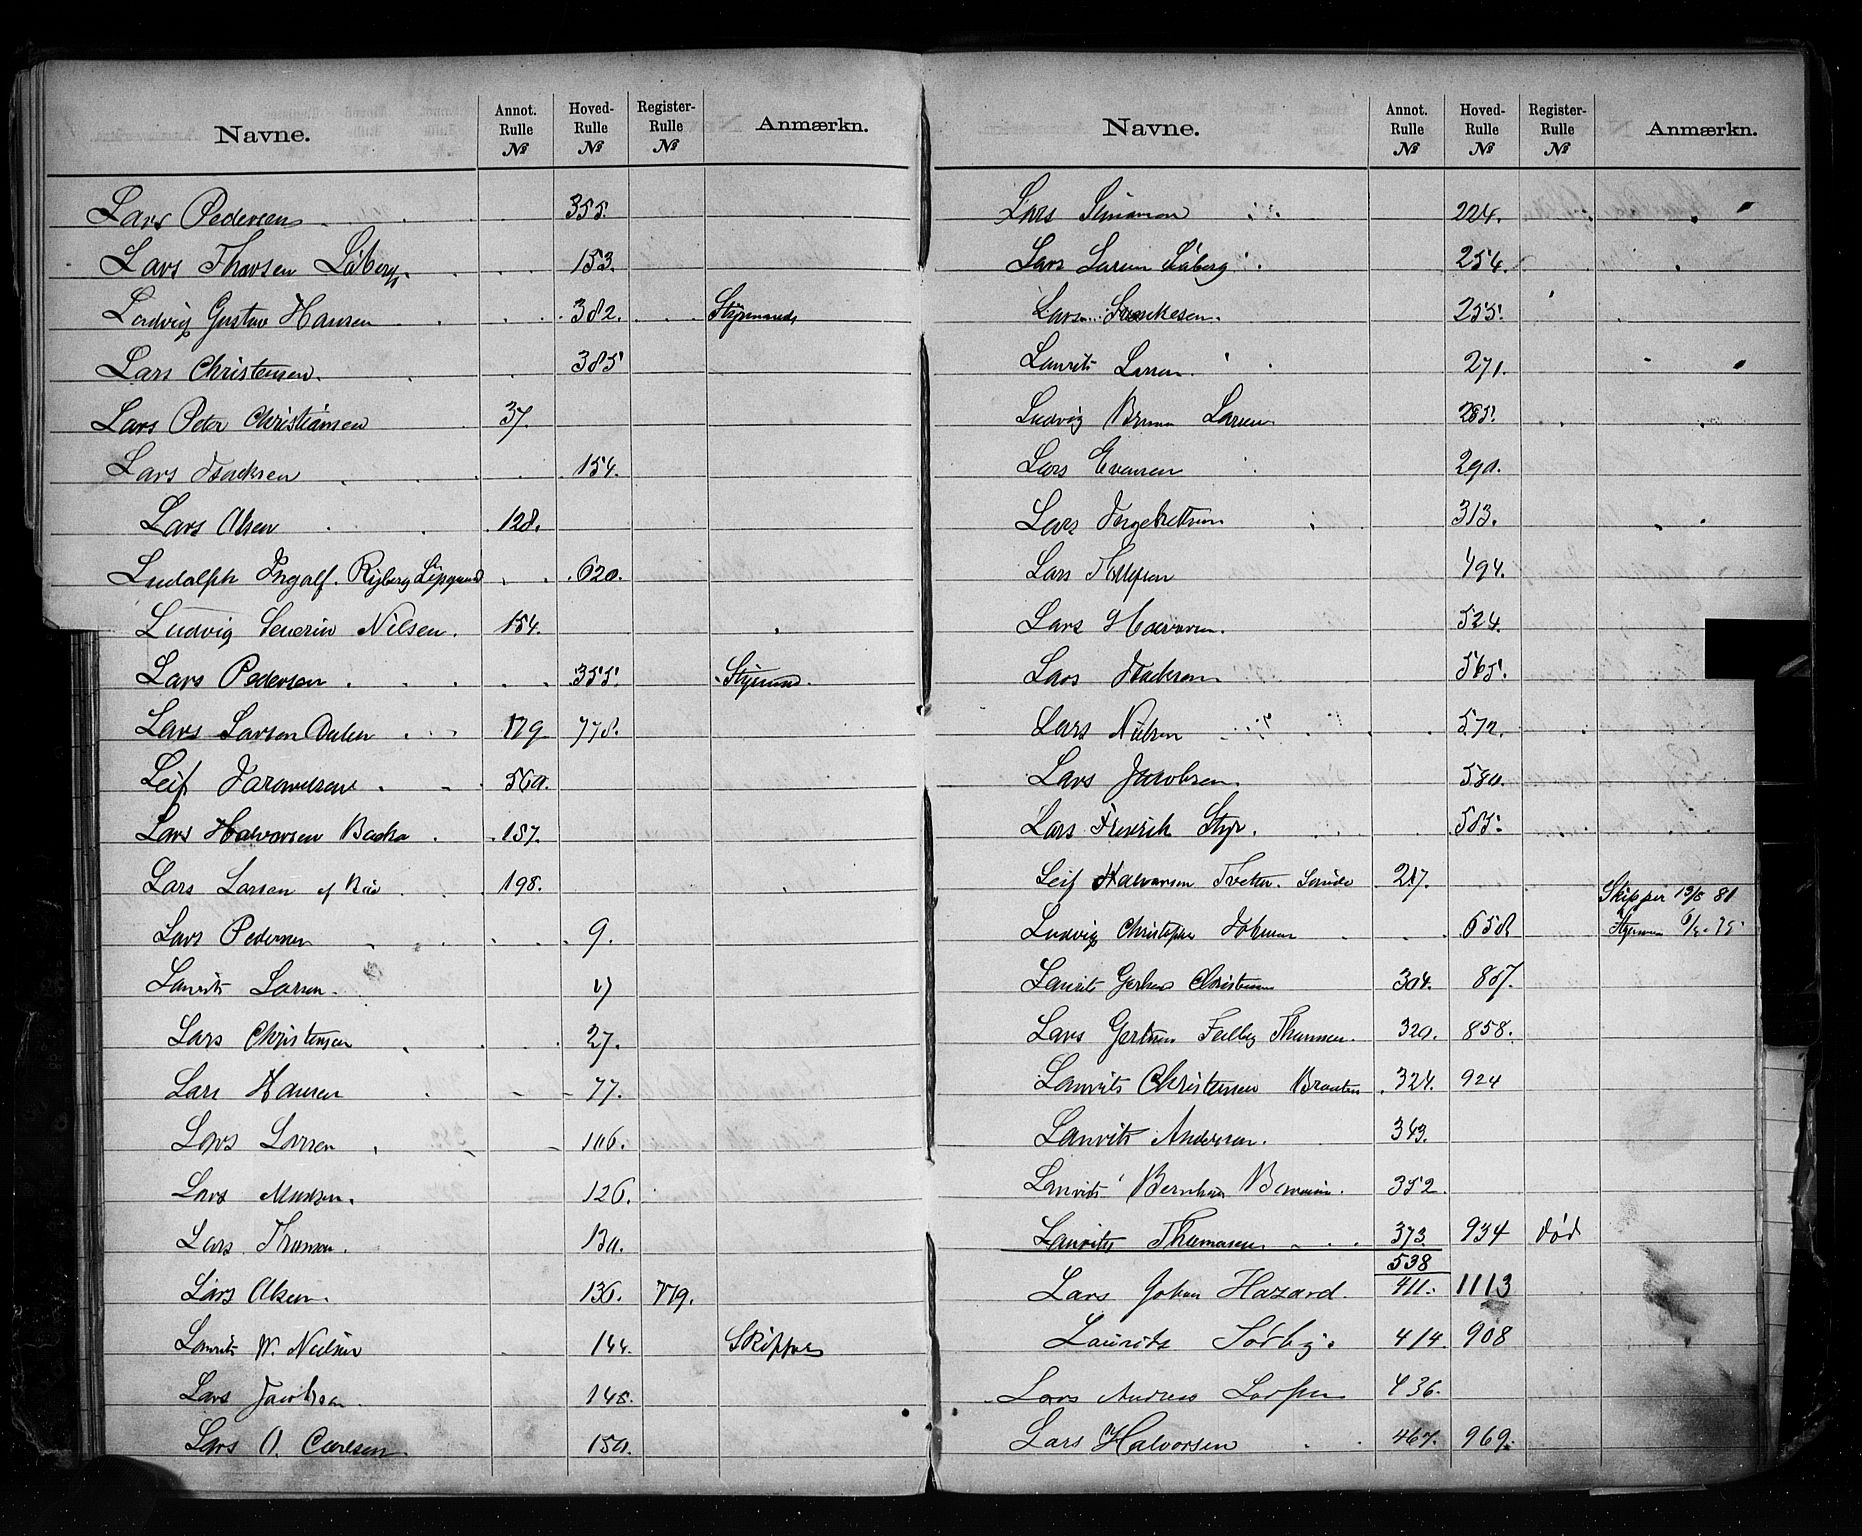 Navne. Annot. Rulle № Hoved- Rulle № Register- Rulle № Anmærkn.
Lars Pedersen 355.
Lars Thorsen Låberg. 153.
Ludvig Gustav Hansen 382. Styrmand
Lars Christensen. 385
Lars Peter Christiansen 37.
Lars Isaksen 154.
Lars Olsen 128.
Ludolph Ingolf Ryberg 620.
Ludvig Severin Nilsen. 154.
Lars Pedersen 355. Styrmd.
Lars Larsen Dalen 179 778.
Leif 560.
Lars Halvorsen Bakka 187.
Lars Larsen af 198.
Lars Pedersen 9.
Laurits Larsen. 17
Lars Christensen 27.
Lars Hansen 77.
Lars Larsen 106.
Lars Madsen. 126.
Lars Thomsen. 130.
Lars Olsen. 136. 779.
Laurits W. Nielsen 144. Skipper
Lars Jacobsen 148.
Lars O. Carlsen 150.
Navne. Annot. Rulle № Hoved- Rulle № Register- Rulle № Anmærkn.
Lars Simonsen 224.
Lars Larsen Låberg 254.
Lars 255.
Laurits Larsen. 271.
Ludvig Larsen 285.
Lars Evensen 290.
Lars Ingebretsen 313.
Lars Tollefsen 494.
Lars Halvorsen. 524.
Lars Isaksen 565.
Lars Nielsen 572.
Lars Jacobsen. 580.
Lars Frederik Styr. 585.
Leif Halvorsen Tveten 217.
Skipper 19/5 81
Ludvig Christopher 658 Styrman
Laurits Christensen 304. 867.
Lars Thomsen. 320. 858.
Laurits Christensen Braaten 324. 924
Laurits Andersen. 343.
Laurits Bernhard 352.
Laurits Thomasen 373. 934 død
538
Lars Johan Hazard. 411. 1113
Laurits Sørby. 414. 908
Lars Andreas 436.
Lars Halvorsen 467. 969.